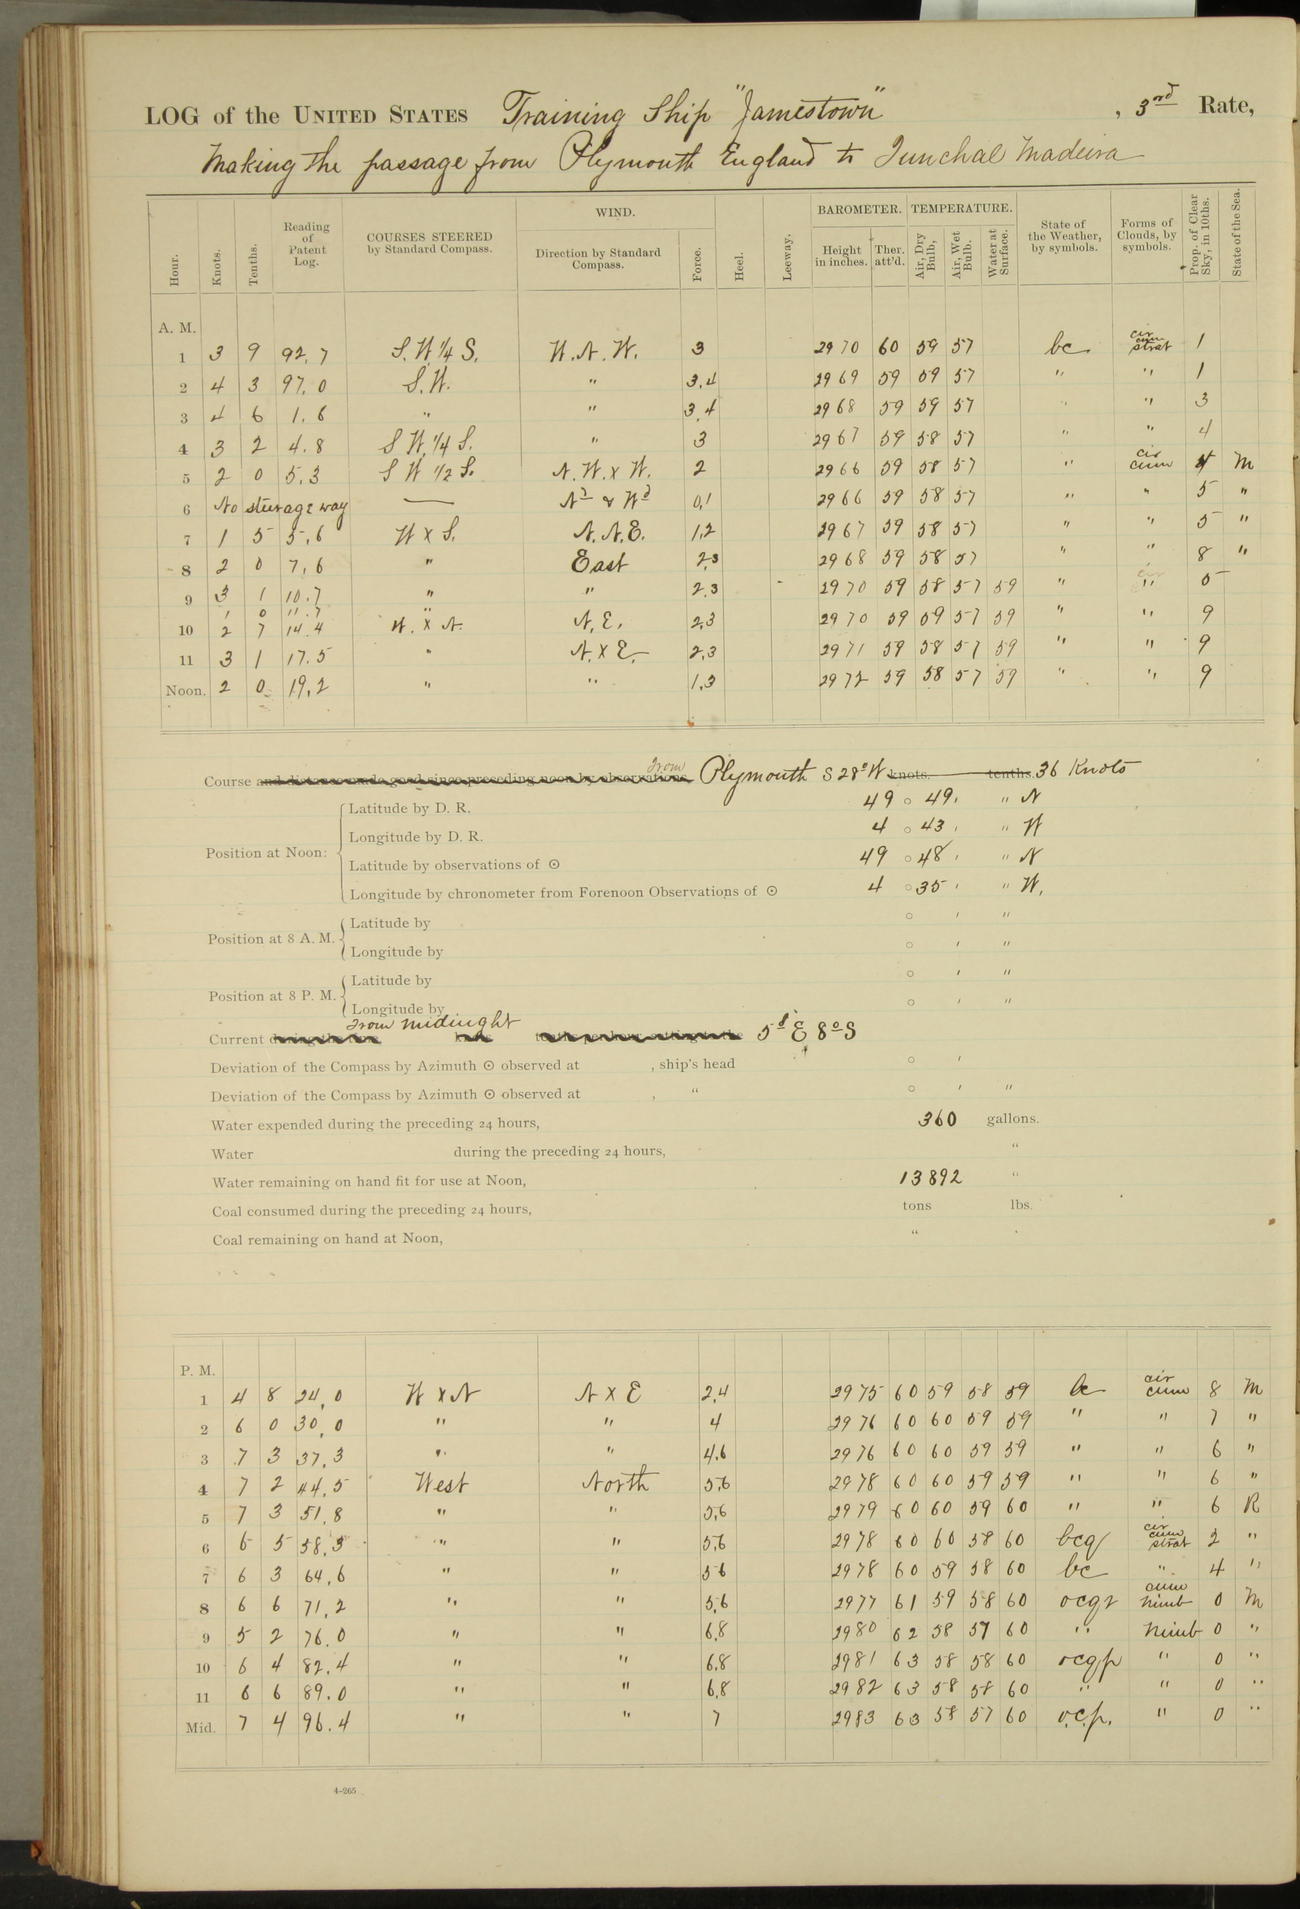 LOG of the UNITED STATES Training Ship "Jamestown", 3rd Rate,
Making the passage from Plymouth England to Funchal Madeira
WIND. BAROMETER. TEMPERATURE.
Hour. Knots. Tenths. Reading of Patent Log. COURSES STEERED by Standard Compass. Direction by Standard Compass. Force. Heel. Leeway. Height in inches. Ther. att'd. Air, Dry Bulb, Air, Wet Bulb. Water at Surface. State of the Weather, by symbols. Forms of Clouds, by symbols. Prop. of Clear Sky, in 10ths. State of the Sea.
A. M.
1 3 9 92.7 S.W 1/4 S. W.N.W. 3 29 70 60 59 57 bc cir cum strat 1
2 4 3 97.0 S.W. " 3,4 29 69 59 59 57 " " 1
3 4 6 1.6 " " 3,4 29 68 59 59 57 " " 3
4 3 2 4.8 S W. 1/4 S. " 3 29 67 59 58 57 " " 4
5 2 0 5.3 S W 1/2 S. N.W. x W. 2 29 66 59 58 57 " cir cum 4 M
6 No steerage way — Nd & Wd 0,1 29 66 59 58 57 " " 5 "
7 1 5 5,6 W x S. N.N.E. 1,2 29 67 59 58 57 " " 5 "
8 2 0 7,6 " East 2,3 29 68 59 58 57 " " 8 "
9 3 1 10.7 " " 2,3 29 70 59 58 57 59 " " 5
1 0 11.7 "
10 2 7 14.4 W. x N. N.E. 2,3 29 70 59 59 57 59 " " 9
11 3 1 17.5 " N. x E. 2,3 29 71 59 58 57 59 " " 9
Noon. 2 0 19,2 " " 1,3 29 72 59 58 57 59 " " 9
Course and distance made good since preceding noon by observations, from Plymouth S 28° W knots. tenths. 36 Knots
Position at Noon:
Latitude by D. R. 49 ° 49 ' " N
Longitude by D. R. 4 ° 43 ' " W
Latitude by observations of ☉ 49 ° 48 ' " N
Longitude by chronometer from Forenoon Observations of ☉ 4 ° 35 ' " W.
Position at 8 A. M.
Latitude by ° ' "
Longitude by ° ' "
Position at 8 P. M.
Latitude by ° ' "
Longitude by ° ' "
Current from midnight 5' E 8° S
Deviation of the Compass by Azimuth ☉ observed at , ship's head ° '
Deviation of the Compass by Azimuth ☉ observed at , " ° ' "
Water expended during the preceding 24 hours, 360 gallons.
Water during the preceding 24 hours, "
Water remaining on hand fit for use at Noon, 13892 "
Coal consumed during the preceding 24 hours, tons lbs.
Coal remaining on hand at Noon, "
P. M.
1 4 8 24,0 W x N N x E 2,4 29 75 60 59 58 59 bc cir cum 8 M
2 6 0 30,0 " " 4 29 76 60 60 59 59 " " 7 "
3 7 3 37,3 " " 4,6 29 76 60 60 59 59 " " 6 "
4 7 2 44,5 West North 5,6 29 78 60 60 59 59 " " 6 "
5 7 3 51,8 " " 5,6 29 79 60 60 59 60 " " 6 R
6 6 5 58,3 " " 5,6 29 78 60 60 58 60 bcq cir cum strat 2 "
7 6 3 64,6 " " 5 6 29 78 60 59 58 60 bc " 4 "
8 6 6 71,2 " " 5,6 29 77 61 59 58 60 ocqr cum nimb 0 M
9 5 2 76.0 " " 6,8 29 80 62 58 57 60 " nimb 0 "
10 6 4 82.4 " " 6,8 29 81 63 58 58 60 ocqp " 0 "
11 6 6 89.0 " " 6,8 29 82 63 58 58 60 " " 0 "
Mid. 7 4 96.4 " " 7 29 83 63 58 57 60 o.c.p. " 0 "
4-265